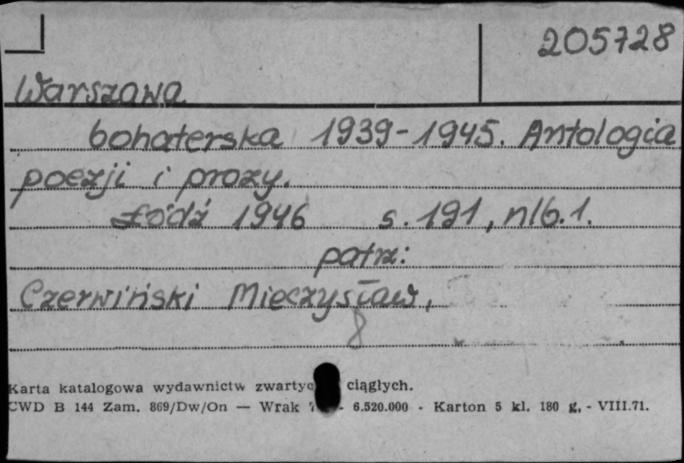 205728
Warszawa
bohaterska 1939-1945. Antologia
poezji i prozy.
Łódź 1946 s. 191, nlb. 1.
patrz:
Czerwiński Mieczysław,
8
Karta katalogowa wydawnictw zwartyc ciągłych.
CWD B 144 Zam. 869/Dw/On — Wrak - 6.520.000 - Karton 5 kl. 180 g, - VIII.71.